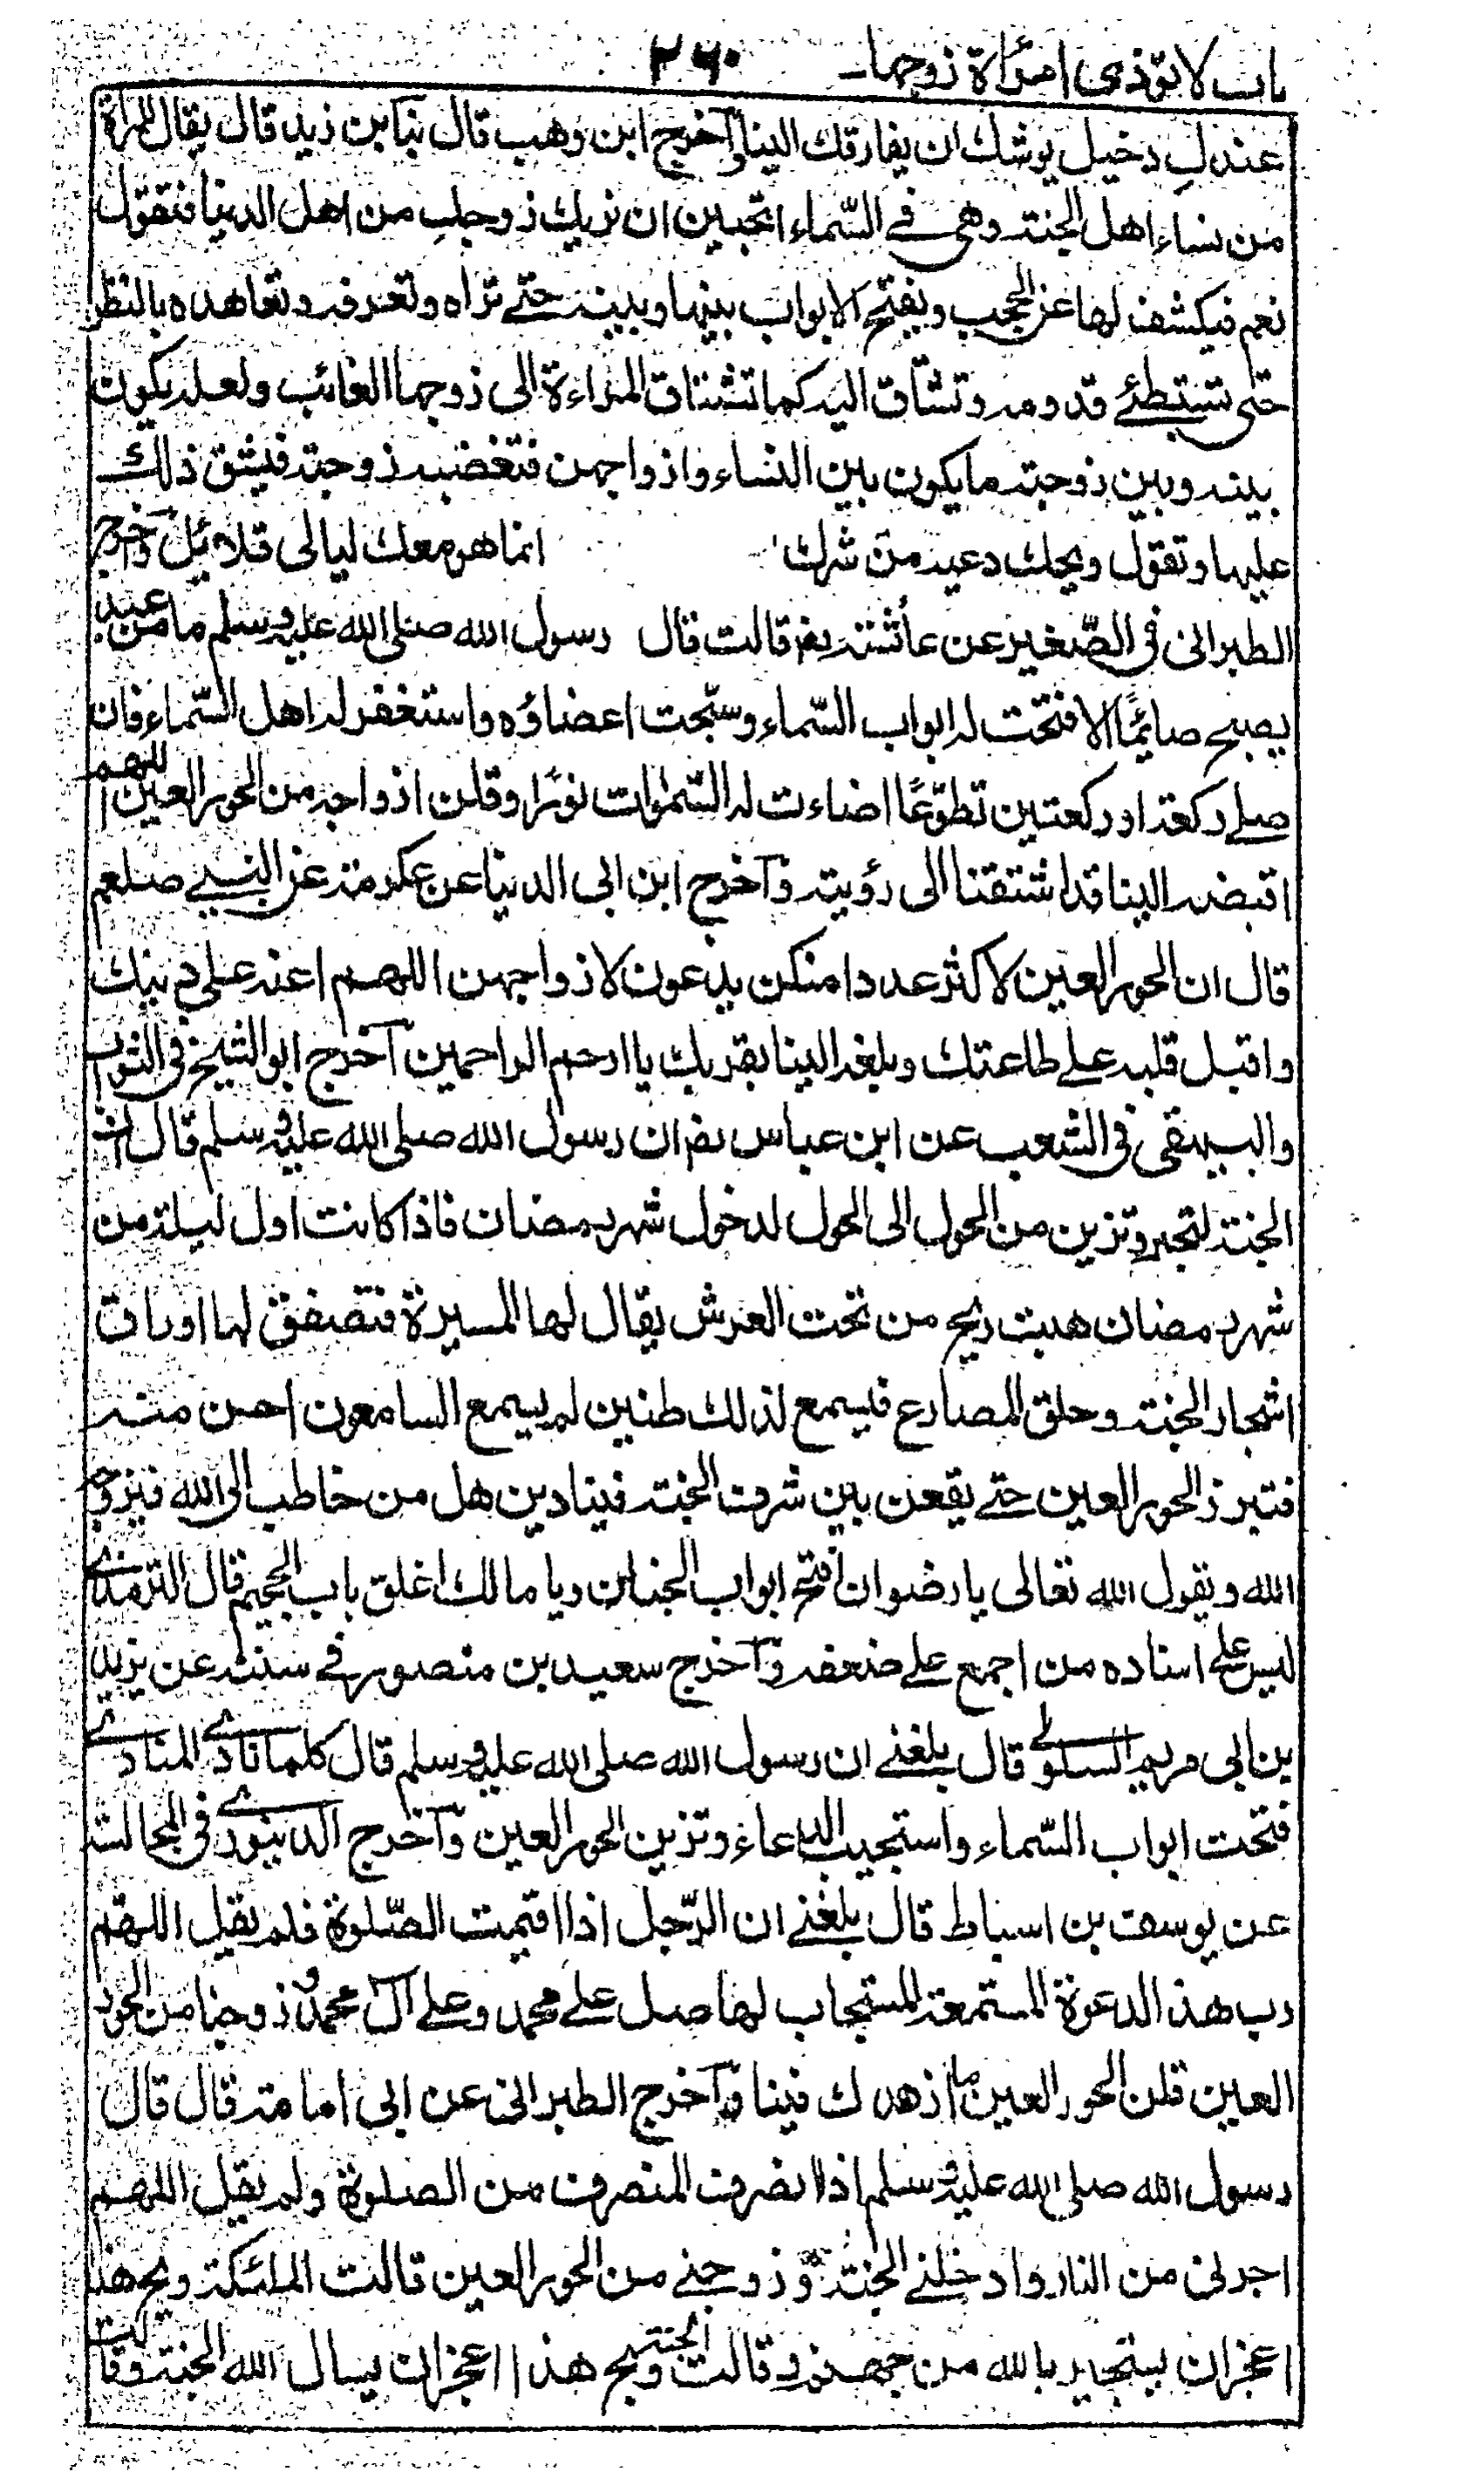 باب لا تؤذى امرأة زوجها ٢٦٠
عندكِ دخيل يوشك ان يفارقك الينا وآخرج ابن وهب قال نبا ابن زيد قال يقال للمرأة
من نساء اهل الجنة وهى فى السّماء اتحبين ان نريك زوجكِ من اهل الدنيا فتقول
نعم فيكشف لها عن الحجب ويفتح الابواب بينها وبينه حتى تراه وتعرفه وتعاهده بالنظر
حتى تستبطئ قدومه وتشتاق اليه كما تشتاق المراءة الى زوجها الغائب ولعله يكون
بينه وبين زوجته ما يكون بين النساء وازواجهن فتغضبه زوجته فيشق ذلك
عليها وتقول ويحك دعيه من شرك انما هو معك ليالى قلائل وآخرج
الطبرانى فى الصّغير عن عائشة رض قالت قال رسول الله صلى الله عليه وسلم ما من عبد
يصبح صائمًا الا فتحت له ابواب السّماء وسبّحت اعضاؤه واستغفر له اهل السّماء فان
صلى ركعة او ركعتين تطوّعًا اضاءت له السّمٰوات نورًا وقلن ازواجه من الحور العين اللهم
اقبضه الينا قد اشتقنا الى رؤيته وآخرج ابن ابى الدنيا عن عكرمة عن النبى صلعم
قال ان الحور العين لاكثر عددا منكن يدعون لازواجهن اللهم اعنه على دينك
واقبل قلبه على طاعتك وبلغه الينا بقربك يا ارحم الراحمين آخرج ابو الشيخ فى الثواب
والبيهقى فى الشعب عن ابن عباس رض ان رسول الله صلى الله عليه وسلم قال ان
الجنة لتجمر وتزين من الحول الى الحول لدخول شهر رمضان فاذا كانت اول ليلة من
شهر رمضان هبت ريح من تحت العرش يقال لها المسيرة فتصفق لها اوراق
اشجار الجنة وحلق المصارع فيسمع لذلك طنين لم يسمع السامعون احسن منه
فتبرز الحور العين حتى يقعن بين شرف الجنة فينادين هل من خاطب الى الله فيزوجه
الله ويقول الله تعالى يا رضوان افتح ابواب الجنان ويا مالك اغلق باب الجحيم قال الترمذى
ليس على اسناده من اجمع على ضعفه وآخرج سعيد بن منصور فى سننه عن يزيد
بن ابى مريم السلولى قال بلغنى ان رسول الله صلى الله عليه وسلم قال كلما نادى المنادى
فتحت ابواب السّماء واستجيب الدعاء وتزين الحور العين وآخرج الدينورى فى المجالسة
عن يوسف بن اسباط قال بلغنى ان الرّجل اذا اقيمت الصّلوة فلم يقل اللهم
رب هذه الدعوة المستمعة المستجاب لها صل على محمد وعلى آل محمد وزوجنا من الحور
العين قلن الحور العين ما ازهدك فينا وآخرج الطبرانى عن ابى امامة قال قال
رسول الله صلى الله عليه وسلم اذا انصرف المنصرف من الصلوة ولم يقل اللهم
اجرنى من النار وادخلنى الجنة وزوجنى من الحور العين قالت الملئكة ويح هذا
اعجز ان يستجير بالله من جهنم وقالت الجنة ويح هذا اعجز ان يسال الله الجنة وقالت